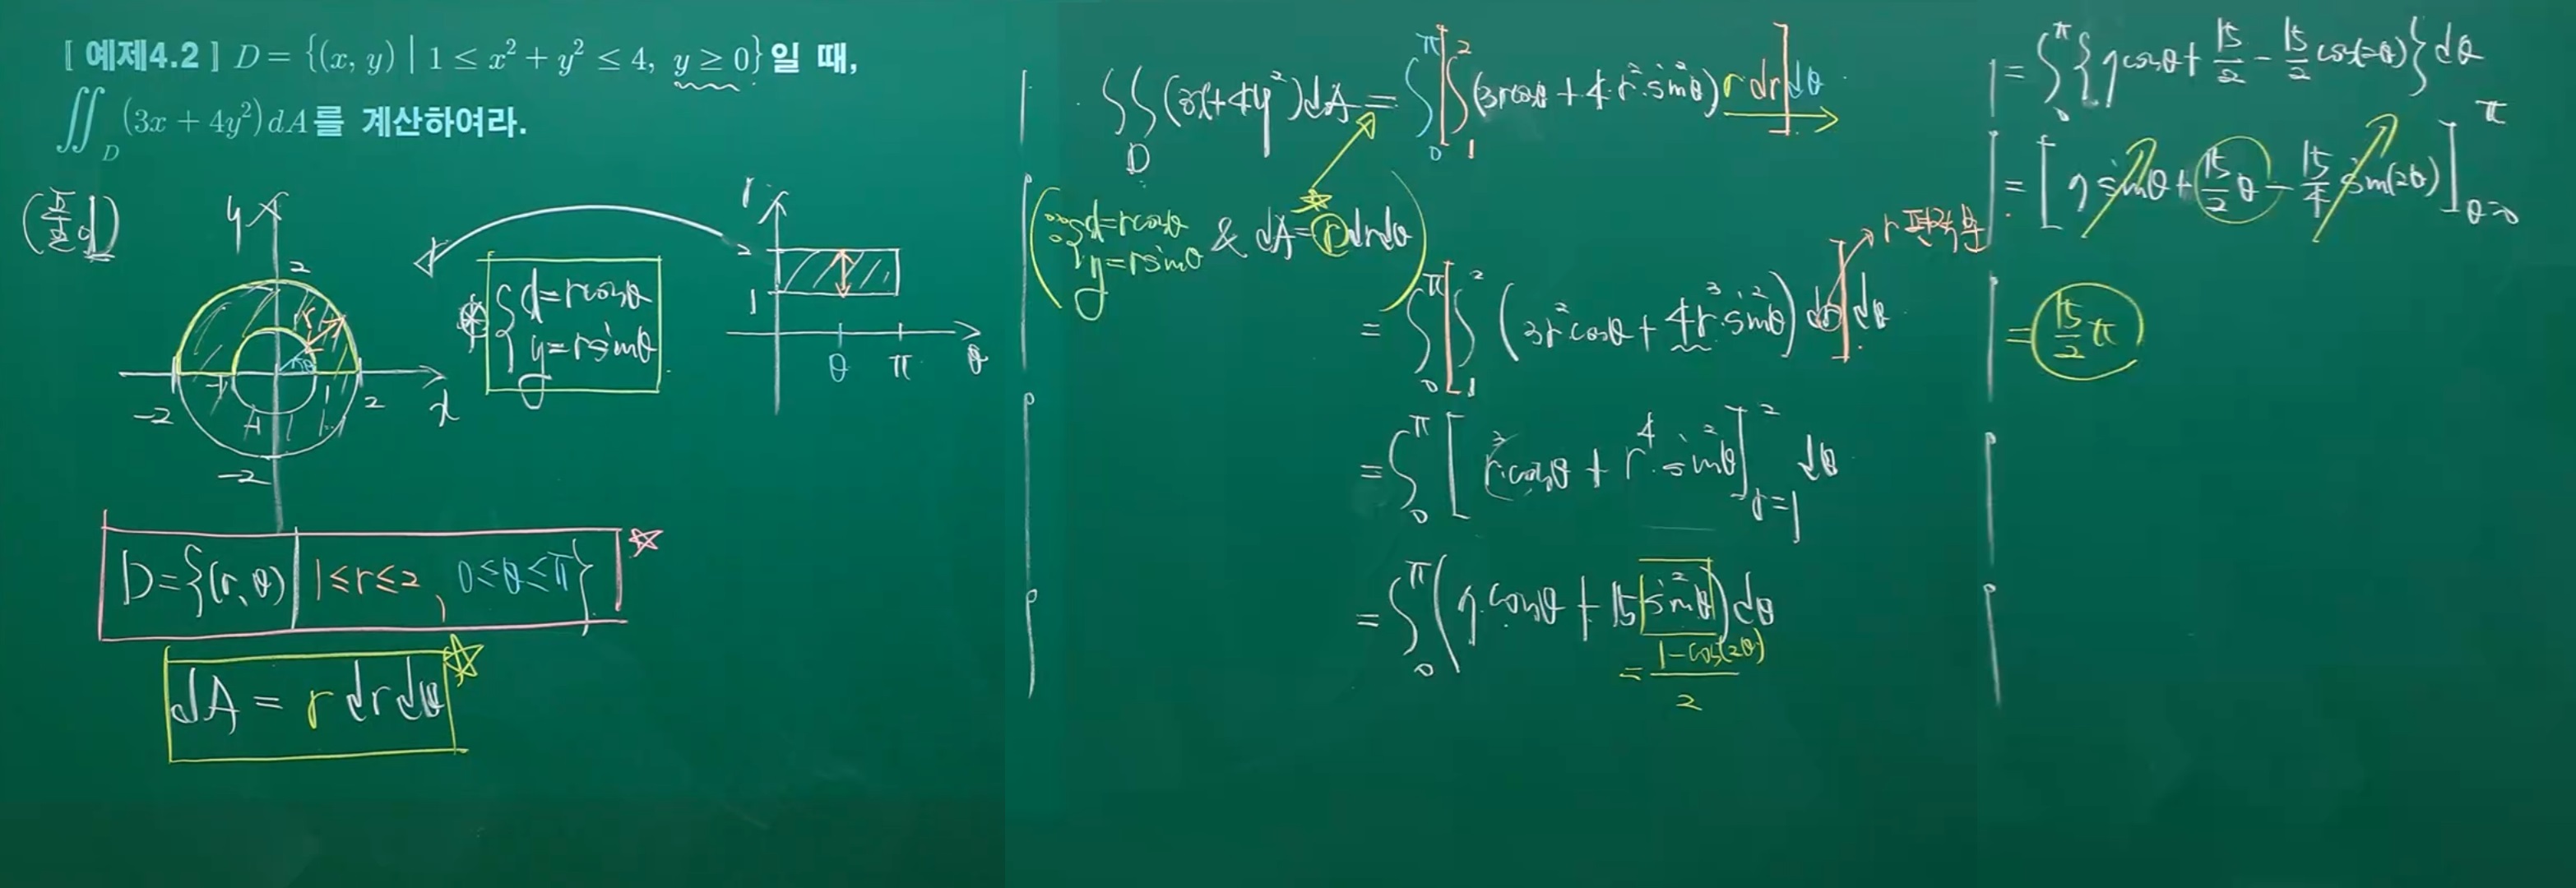 [예제4.2] D = {(x, y) | 1 ≤ x² + y² ≤ 4, y ≥ 0}일 때,
∬_D (3x + 4y²)dA를 계산하여라.
(풀이)
y
2
r
θ
-2
-1
1
2
x
-1
-2
{x=rcosθ
y=rsinθ
r
2
1
θ
π
θ
D={(r,θ)|1≤r≤2, 0≤θ≤π}
dA = r drdθ
∬_D (3x+4y²)dA = ∫_0^π ∫_1^2 (3rcosθ + 4·r²·sin²θ) r dr dθ
(∵ {x=rcosθ
y=rsinθ & dA=rdrdθ)
= ∫_0^π ∫_1^2 (3r²cosθ + 4r³·sin²θ) dr dθ
r 편적분
= ∫_0^π [r³·cosθ + r⁴·sin²θ]_{r=1}^2 dθ
= ∫_0^π (7·cosθ + 15 sin²θ) dθ
= (1-cos(2θ))/2
= ∫_0^π {7cosθ + 15/2 - 15/2 cos(2θ)} dθ
= [7 sinθ + 15/2 θ - 15/4 sin(2θ)]_{θ=0}^π
= 15/2 π